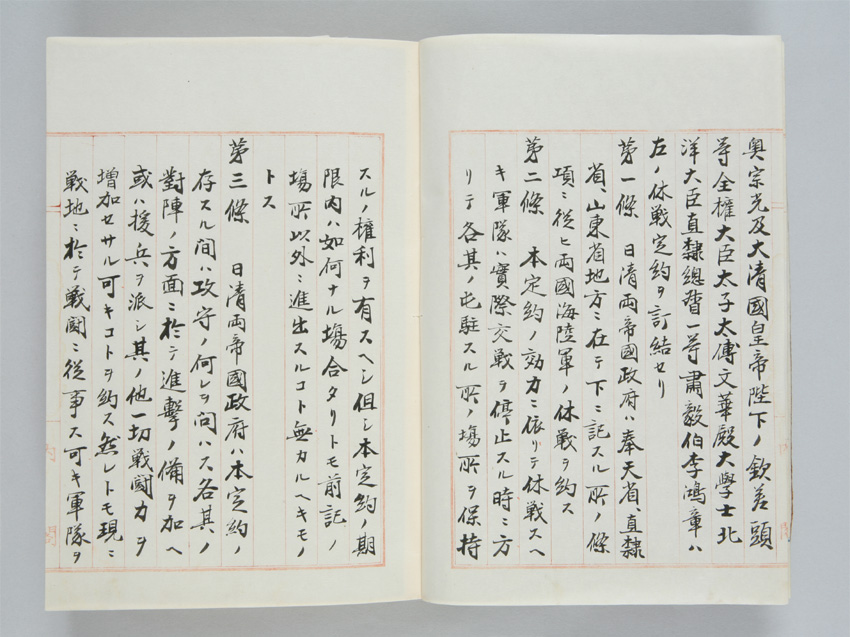 奥宗光及大清國皇帝陛下ノ欽差頭
等全權大臣太子太傅文華殿大學士北
洋大臣直隸總督一等肅毅伯李鴻章ハ
左ノ休戦定約ヲ訂結セリ
第一條　日清両帝國政府ハ奉天省、直隸
省、山東省地方ニ在テ下ニ記スル所ノ條
項ニ従ヒ両國海陸軍ノ休戦ヲ約ス
第二條　本定約ノ効力ニ依リテ休戦スヘ
キ軍隊ハ實際交戦ヲ停止スル時ニ方
リテ各其ノ屯駐スル所ノ場所ヲ保持
スルノ権利ヲ有スヘシ但シ本定約ノ期
限内ハ如何ナル場合タリトモ前記ノ
場所以外ニ進出スルコト無カルヘキモノ
トス
第三條　日清両帝國政府ハ本定約ノ
存スル間ハ攻守ノ何レヲ問ハス各其ノ
對陣ノ方面ニ於テ進撃ノ備ヲ加ヘ
或ハ援兵ヲ派シ其ノ他一切戦闘力ヲ
増加セサル可キコトヲ約ス然レトモ現ニ
戦地ニ於テ戦闘ニ従事ス可キ軍隊ヲ
内閣